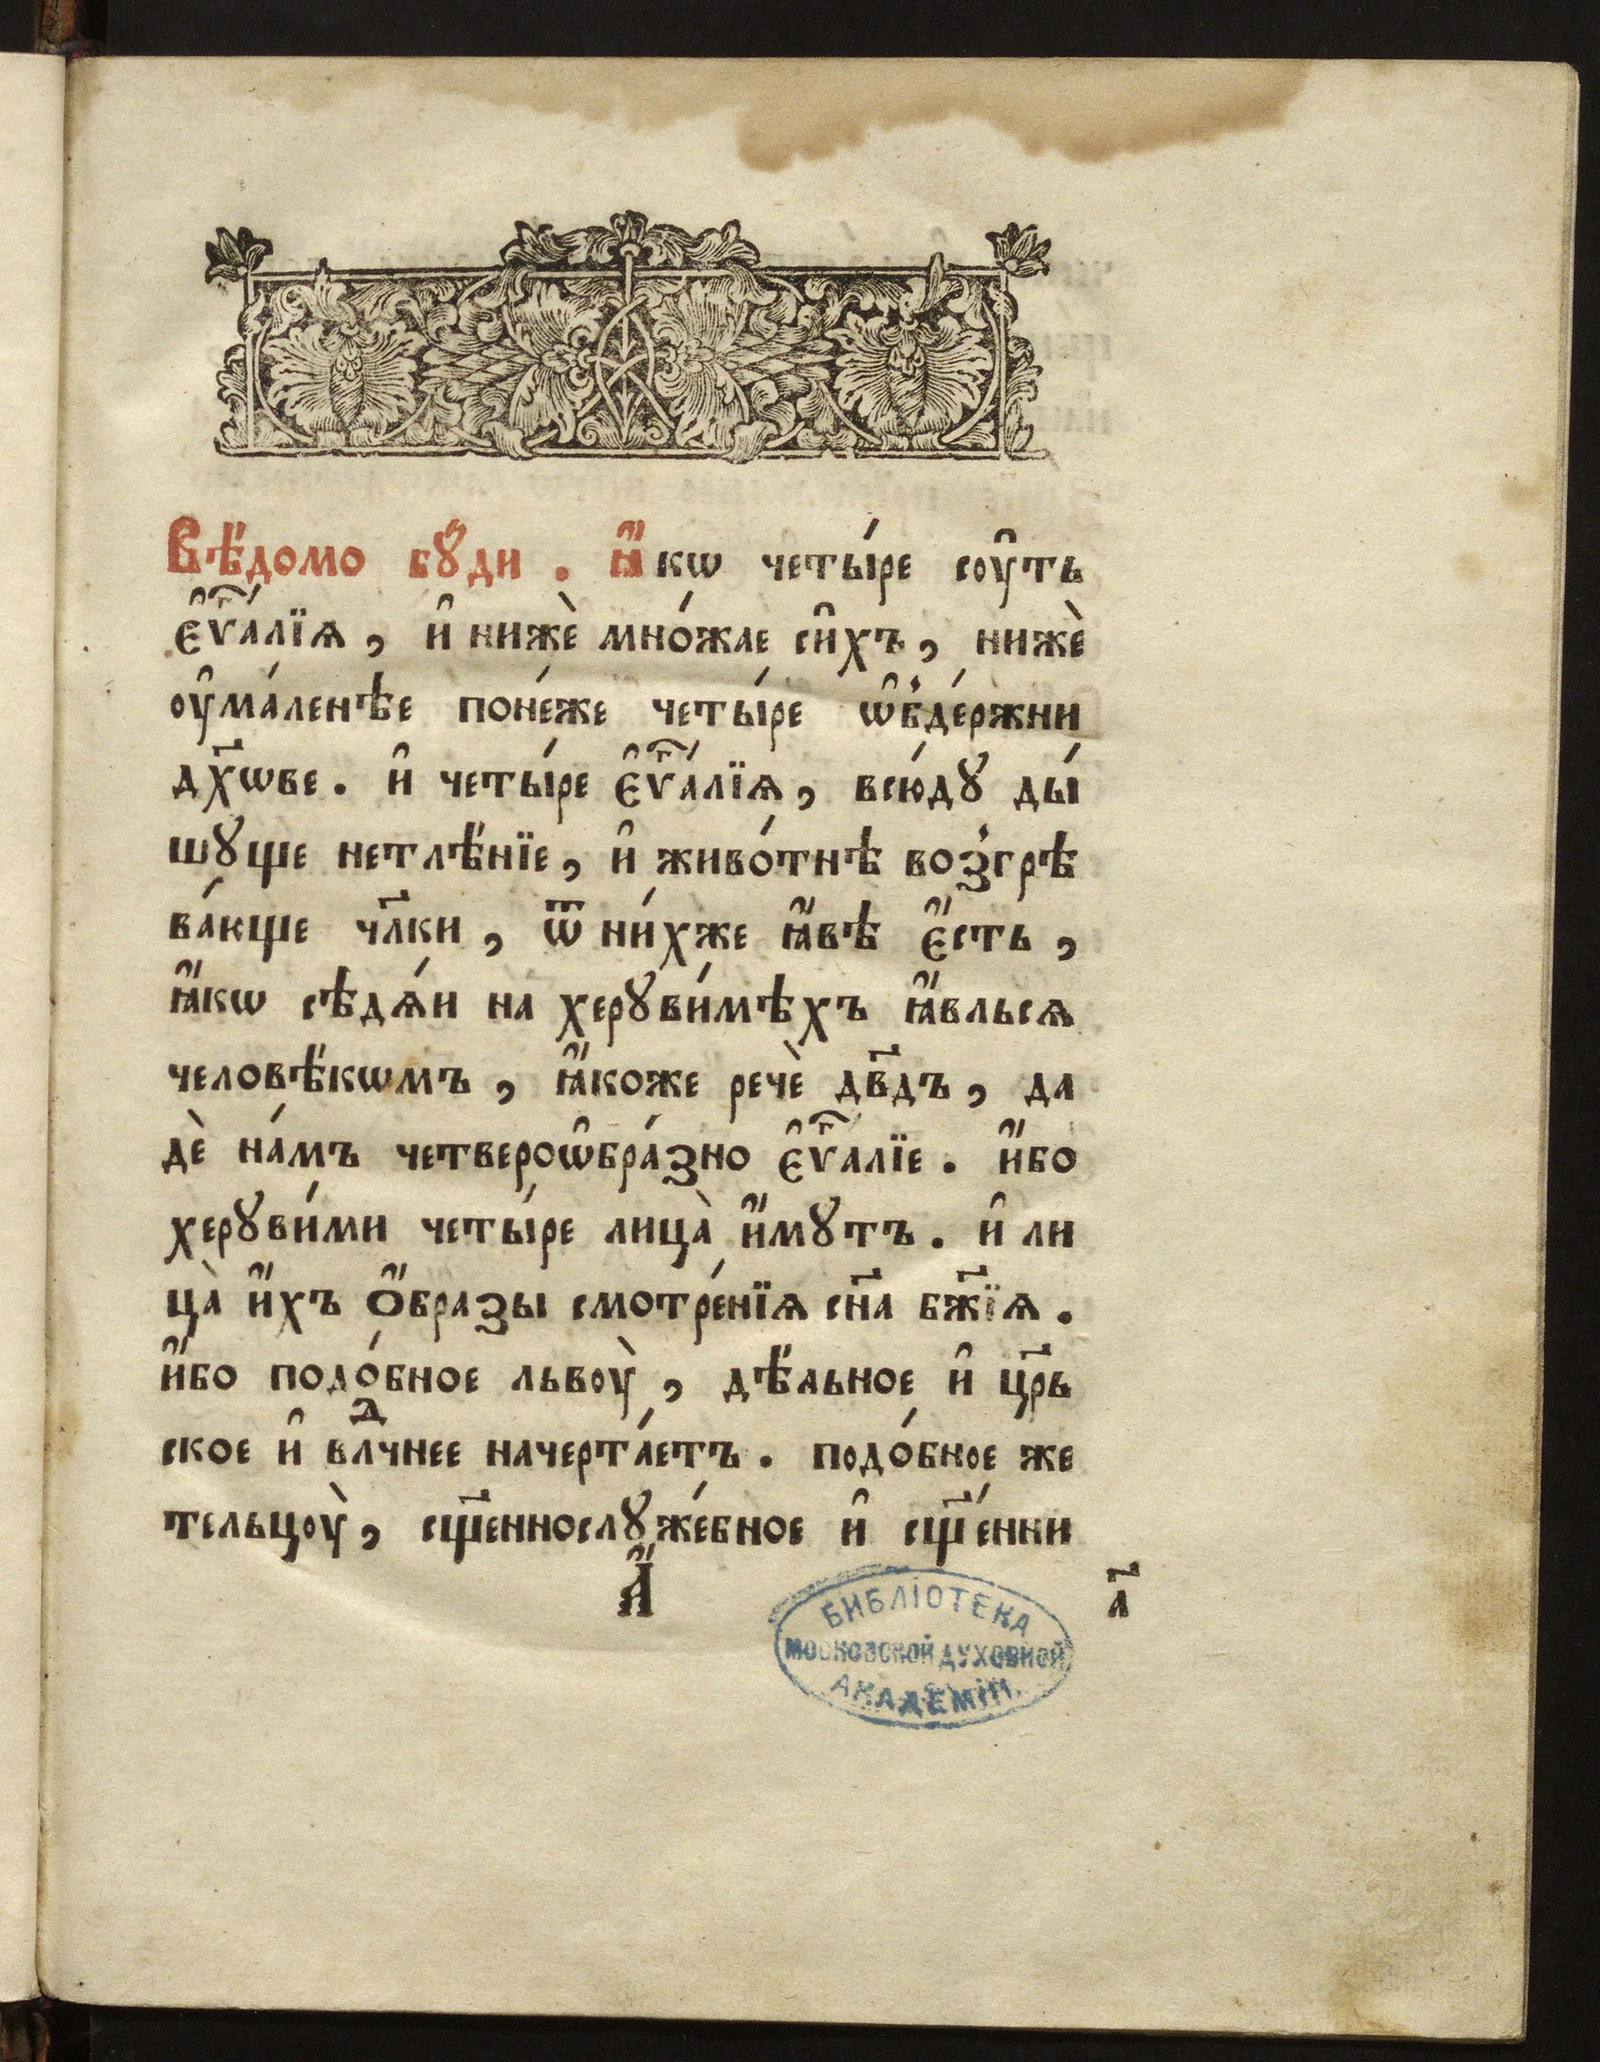 Вѣ́домо бꙋ́ди . ꙗ҆́кѡ четы́ре сꙋ̑ть
є҆ѵⷢ҇а́лїѧ , и҆ нижѐ мно́жае си̑хъ , нижѐ
ᲂу҆ма́ленѣе поне́же четы́ре ѡ҆б̾де́ржни
дх҃ѡве . и҆ четы́ре є҆ѵⷢ҇а́лїѧ , всю́дꙋ ды́
шꙋще нетлѣ́нїе , и҆ живо́тнѣ воз̾грѣ
ва́юще чл҃ки , ѿ ни́хже ꙗ҆́вѣ є҆́сть ,
ꙗ҆́кѡ сѣдѧ́и на херꙋви́мѣхъ ꙗ҆́вльсѧ
человѣ́кѡмъ , ꙗ҆́коже речѐ дв҃дъ , да
дѐ на́мъ четвероѡ҆бра́зно є҆ѵⷢ҇а́лїе . и҆́бо
херꙋви́ми четы́ре лица̀ и҆́мꙋтъ . и҆ ли
ца̀ и҆́хъ ѻ҆́бразы смотре́нїѧ сн҃а бж҃їѧ .
и҆́бо подо́бное львᲂу̀ , дѣ́льное и҆ цр҃ь
ское и҆ влⷣчнее начерта́етъ . подо́бное же
тельцᲂу̀ , сщ҃еннослꙋже́бное и҆ сщ҃е́нни
а҆́ а҃
БИБЛІОТЕКА
МОСКОВСКОЙ ДУХОВНОЙ
АКАДЕМІИ.